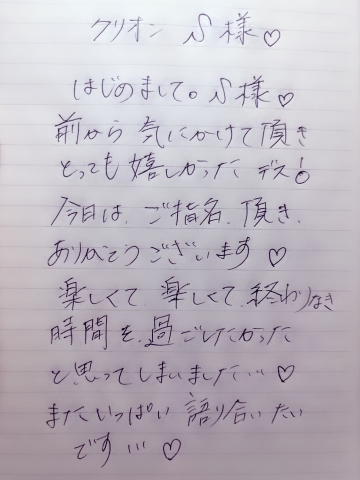 クリオン S様♡
はじめまして。S様♡
前から気にかけて頂き
とっても嬉しかったデス!
今日は、ご指名、頂き、
ありがとうございます♡
楽しくて、楽しくて、終わりなき
時間を、過ごしたかった
と、思ってしまいました…♡
またいっぱい語り合いたい
です…♡